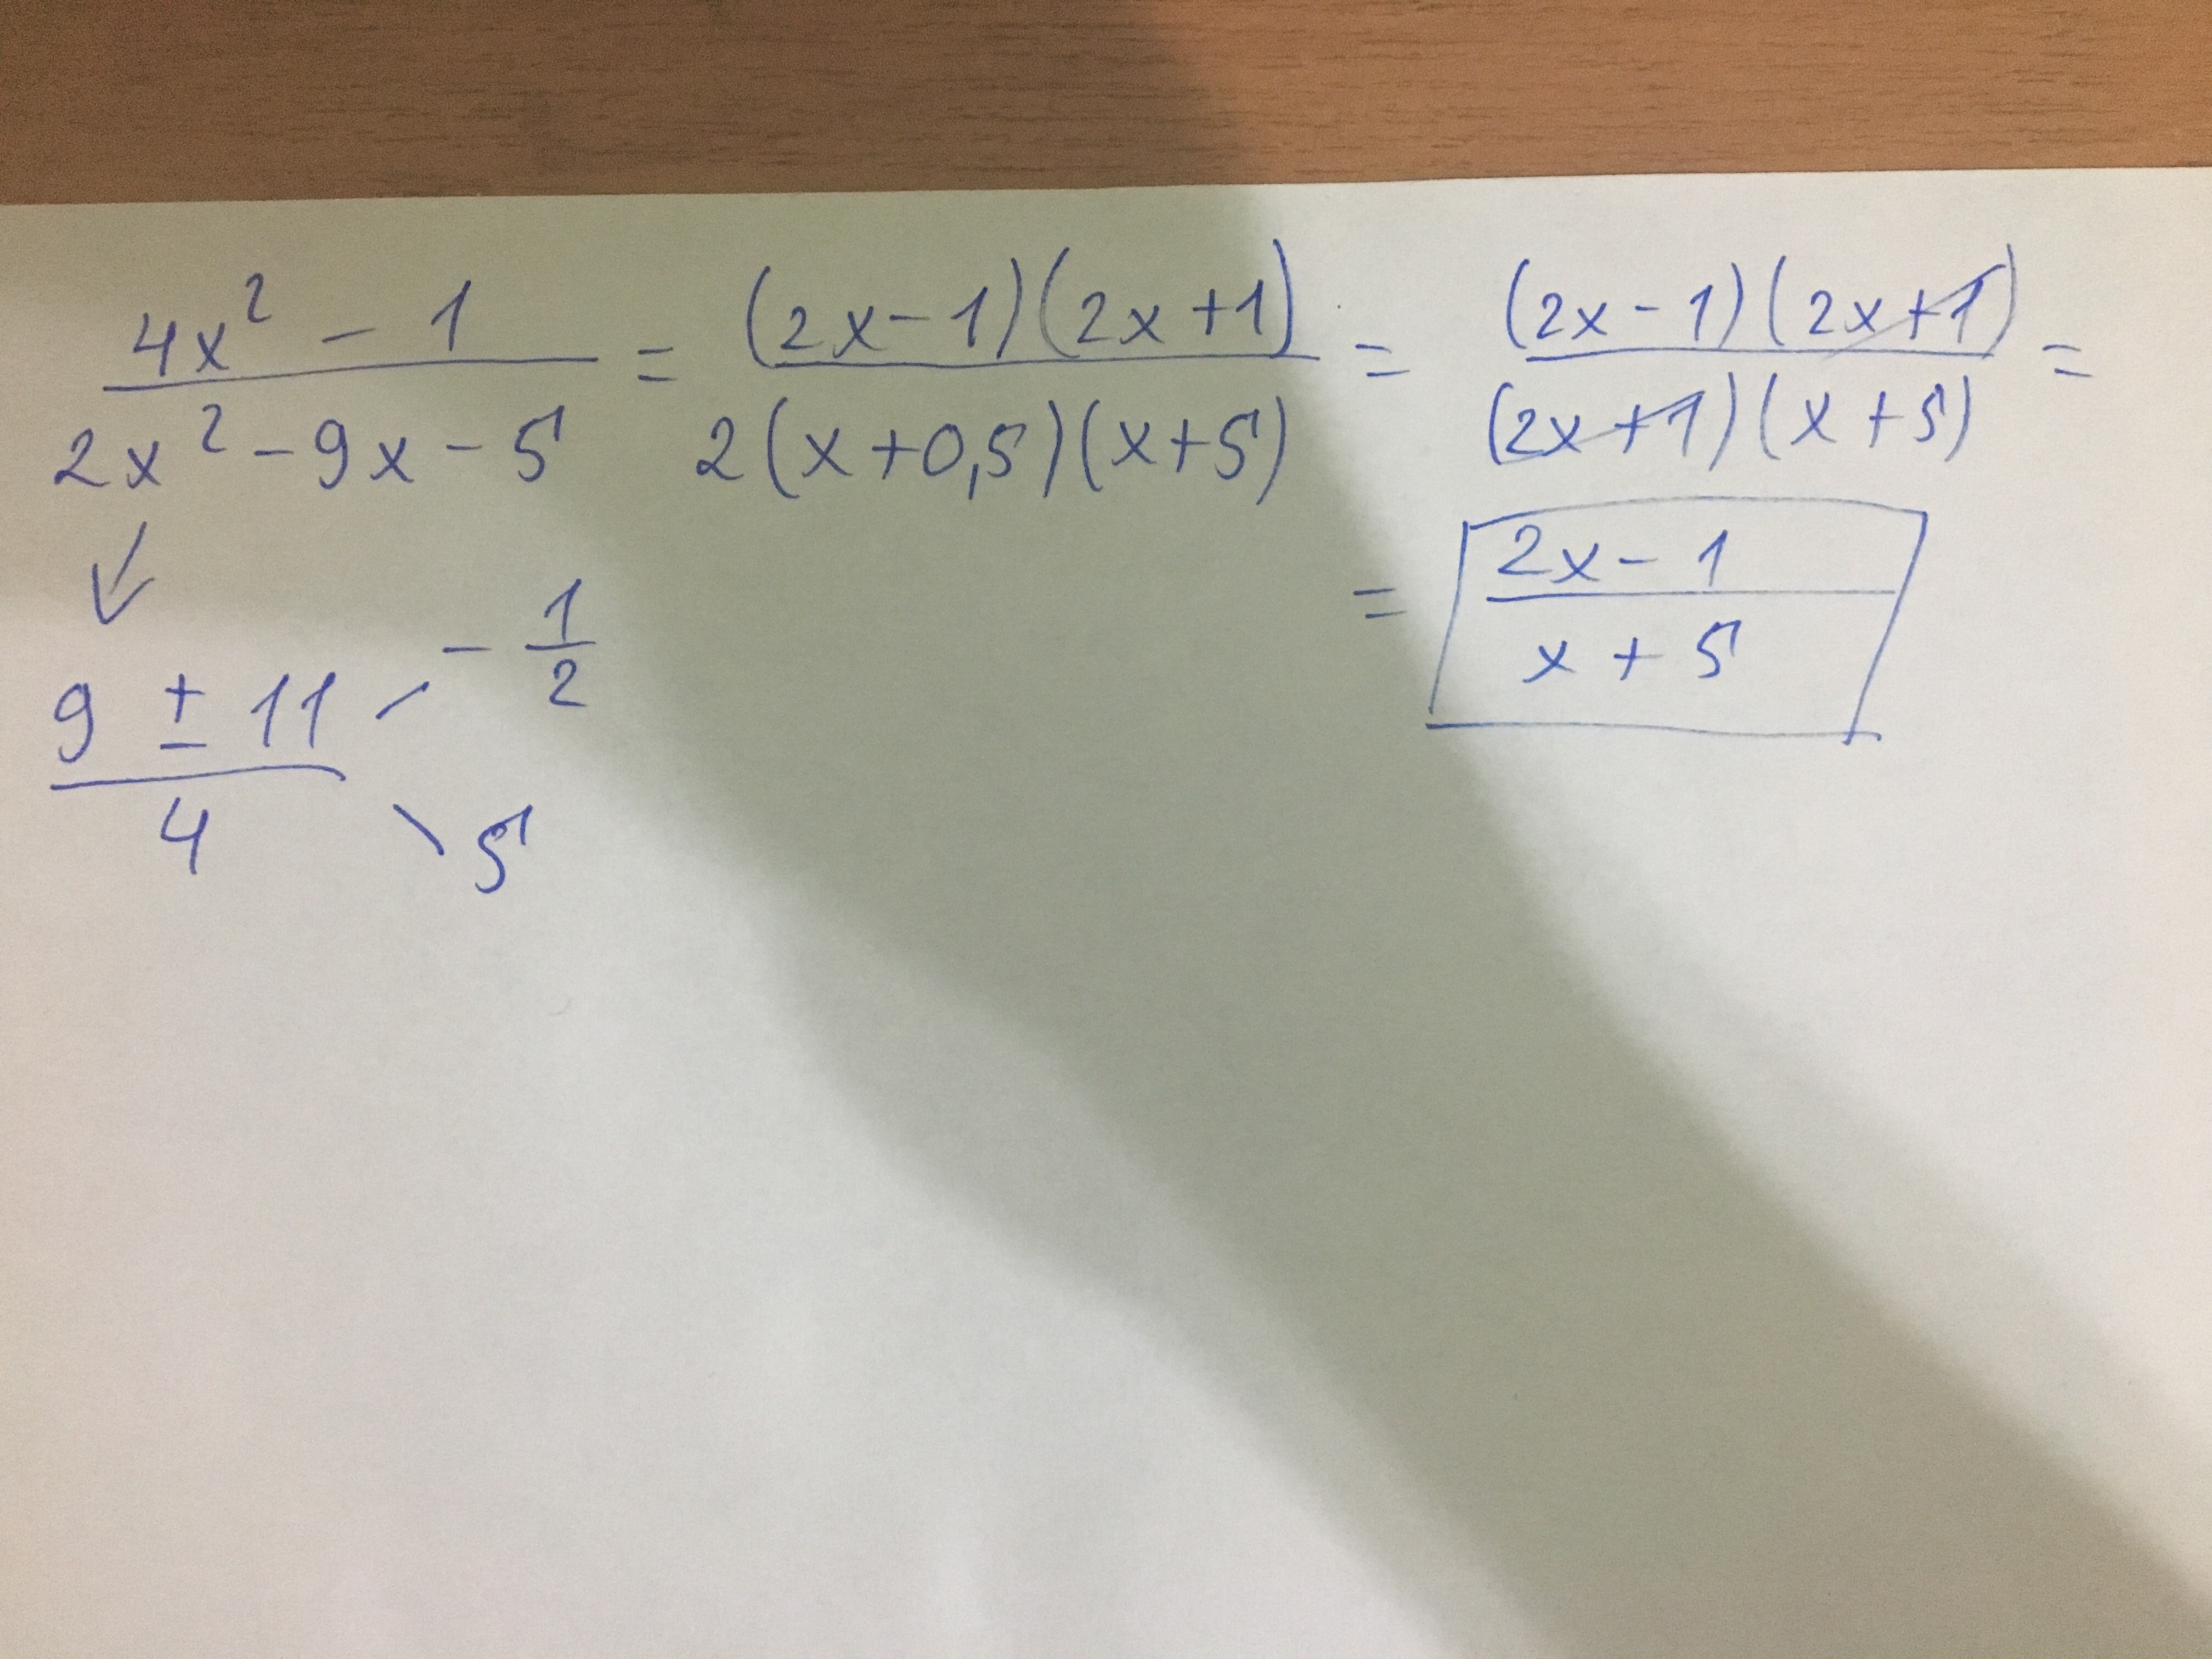 4x² - 1 / 2x² - 9x - 5 = (2x-1)(2x+1) / 2(x+0,5)(x+5) = (2x-1)(2x+1) / (2x+1)(x+5) =
= 2x-1 / x+5
↓
9 ± 11 / 4
- 1/2
5